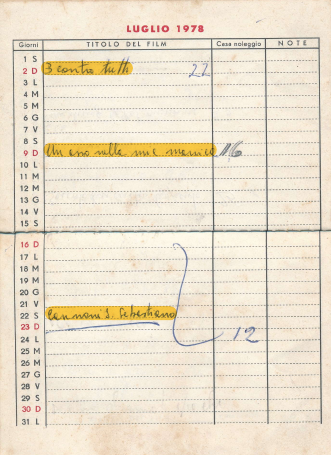 LUGLIO 1978
Giorni TITOLO DEL FILM Casa noleggio NOTE
1 S
2 D 3 contro tutti 22
3 L
4 M
5 M
6 G
7 V
8 S
9 D Un eroe nella mia manica 116
10 L
11 M
12 M
13 G
14 V
15 S
16 D
17 L
18 M
19 M
20 G
21 V
22 S Cannoni S. Sebastiano
23 D
24 L 12
25 M
26 M
27 G
28 V
29 S
30 D
31 L